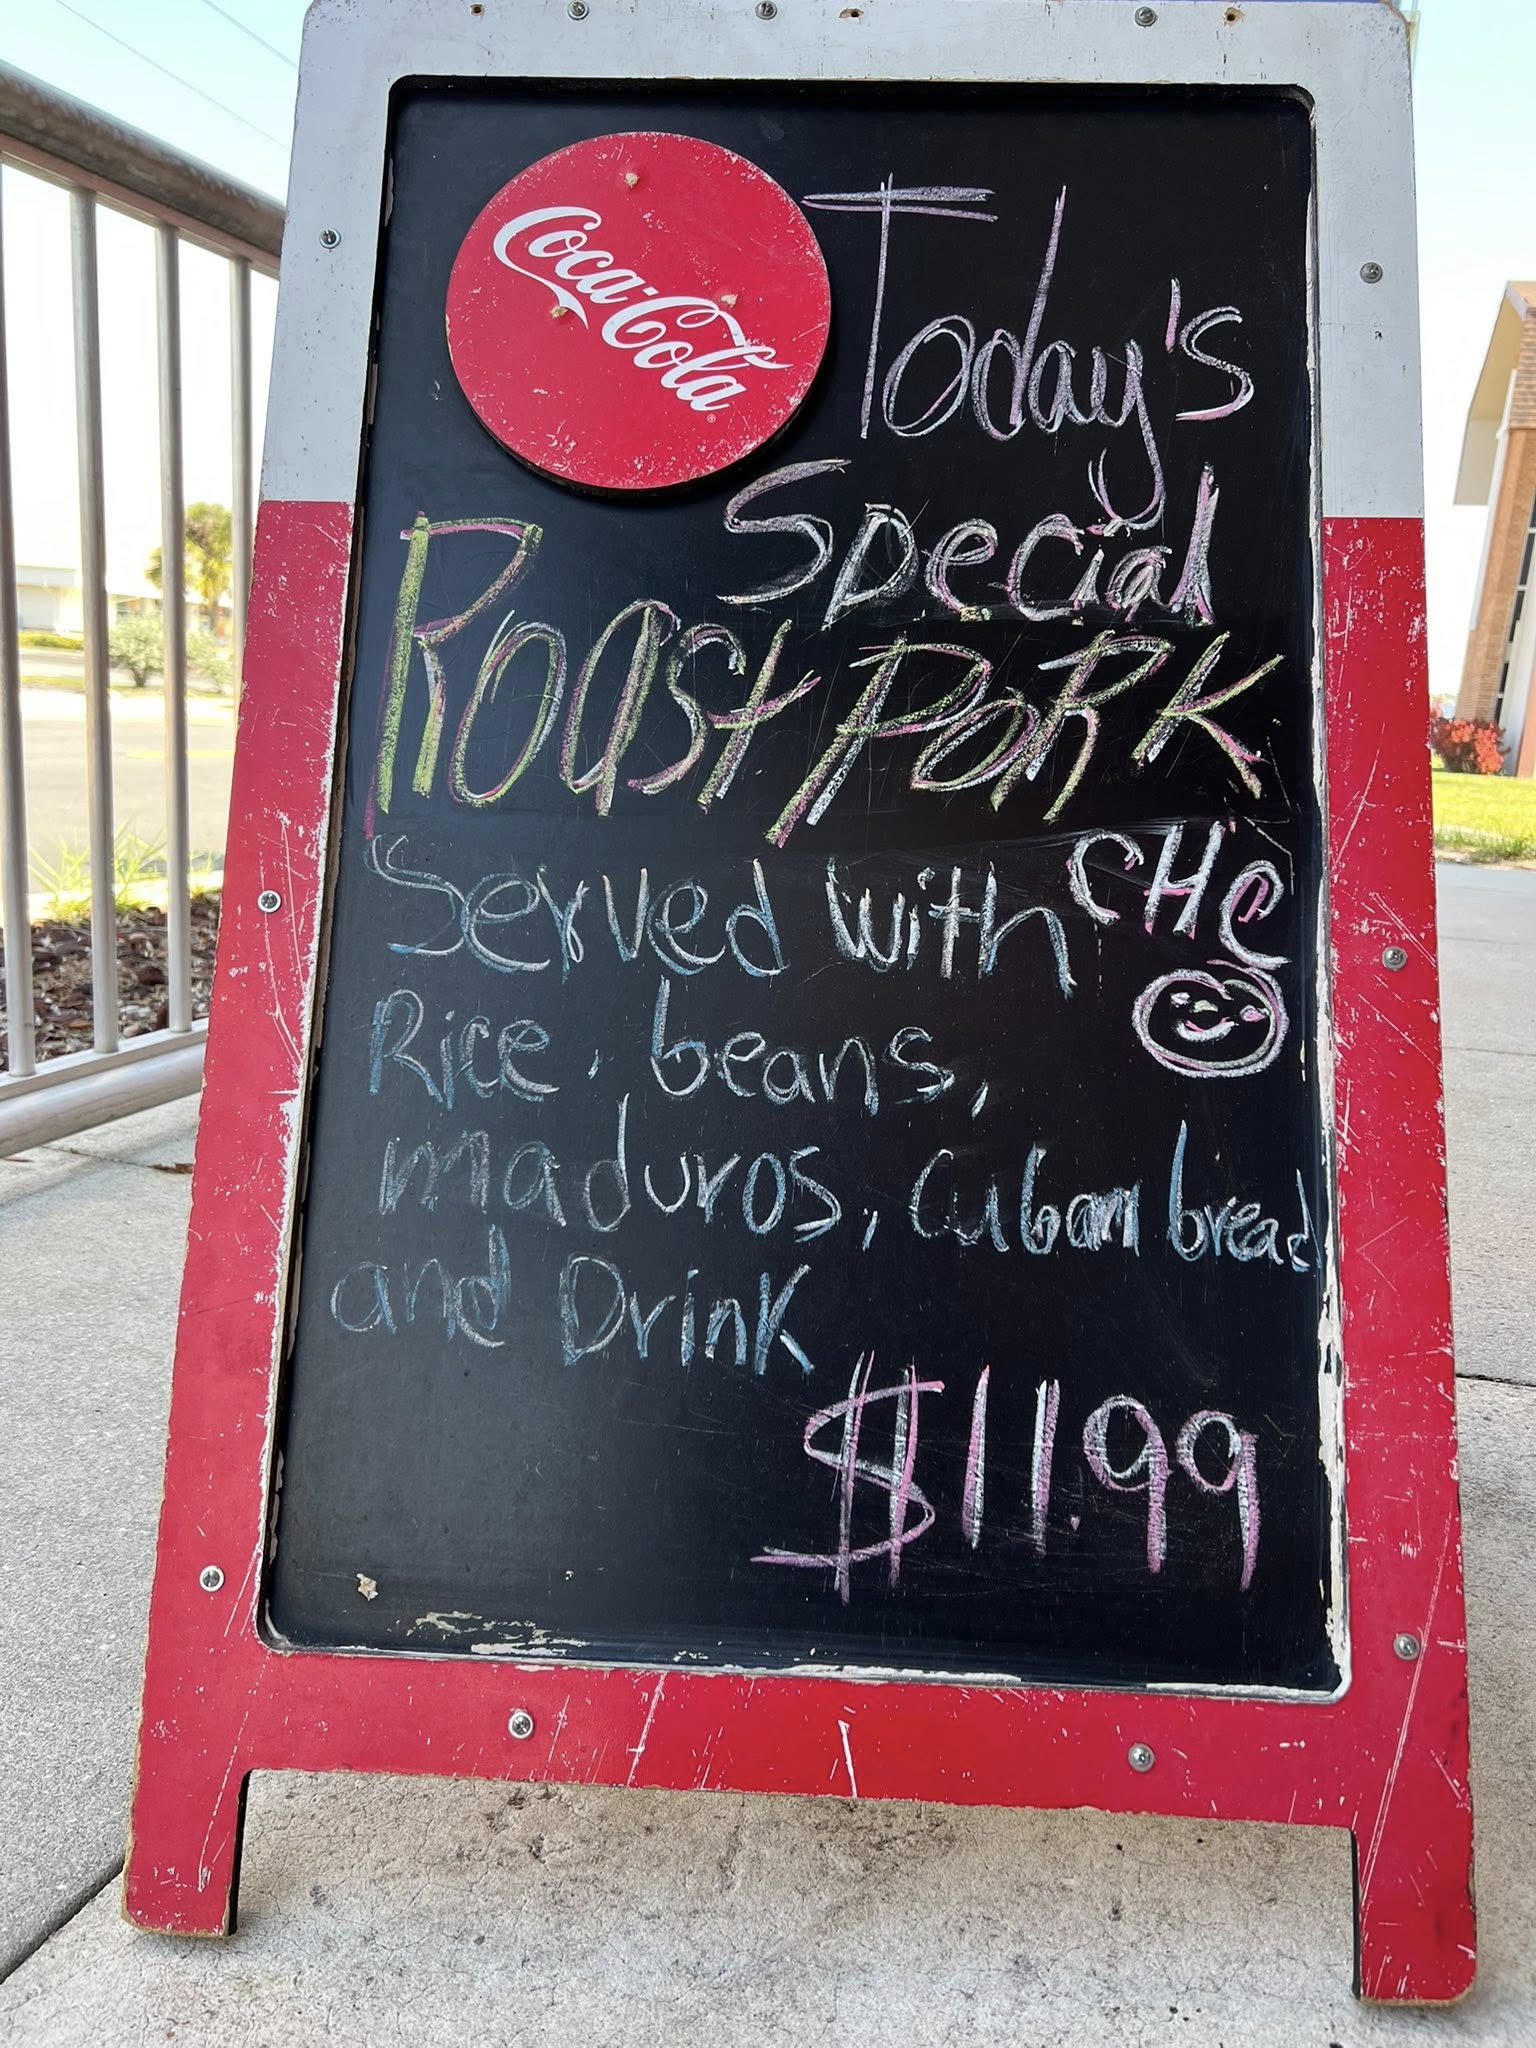 Coca-Cola
Today's
Special
Roast PORK
Served with CHE
Rice, beans,
maduros, Cuban bread
and Drink
$11.99